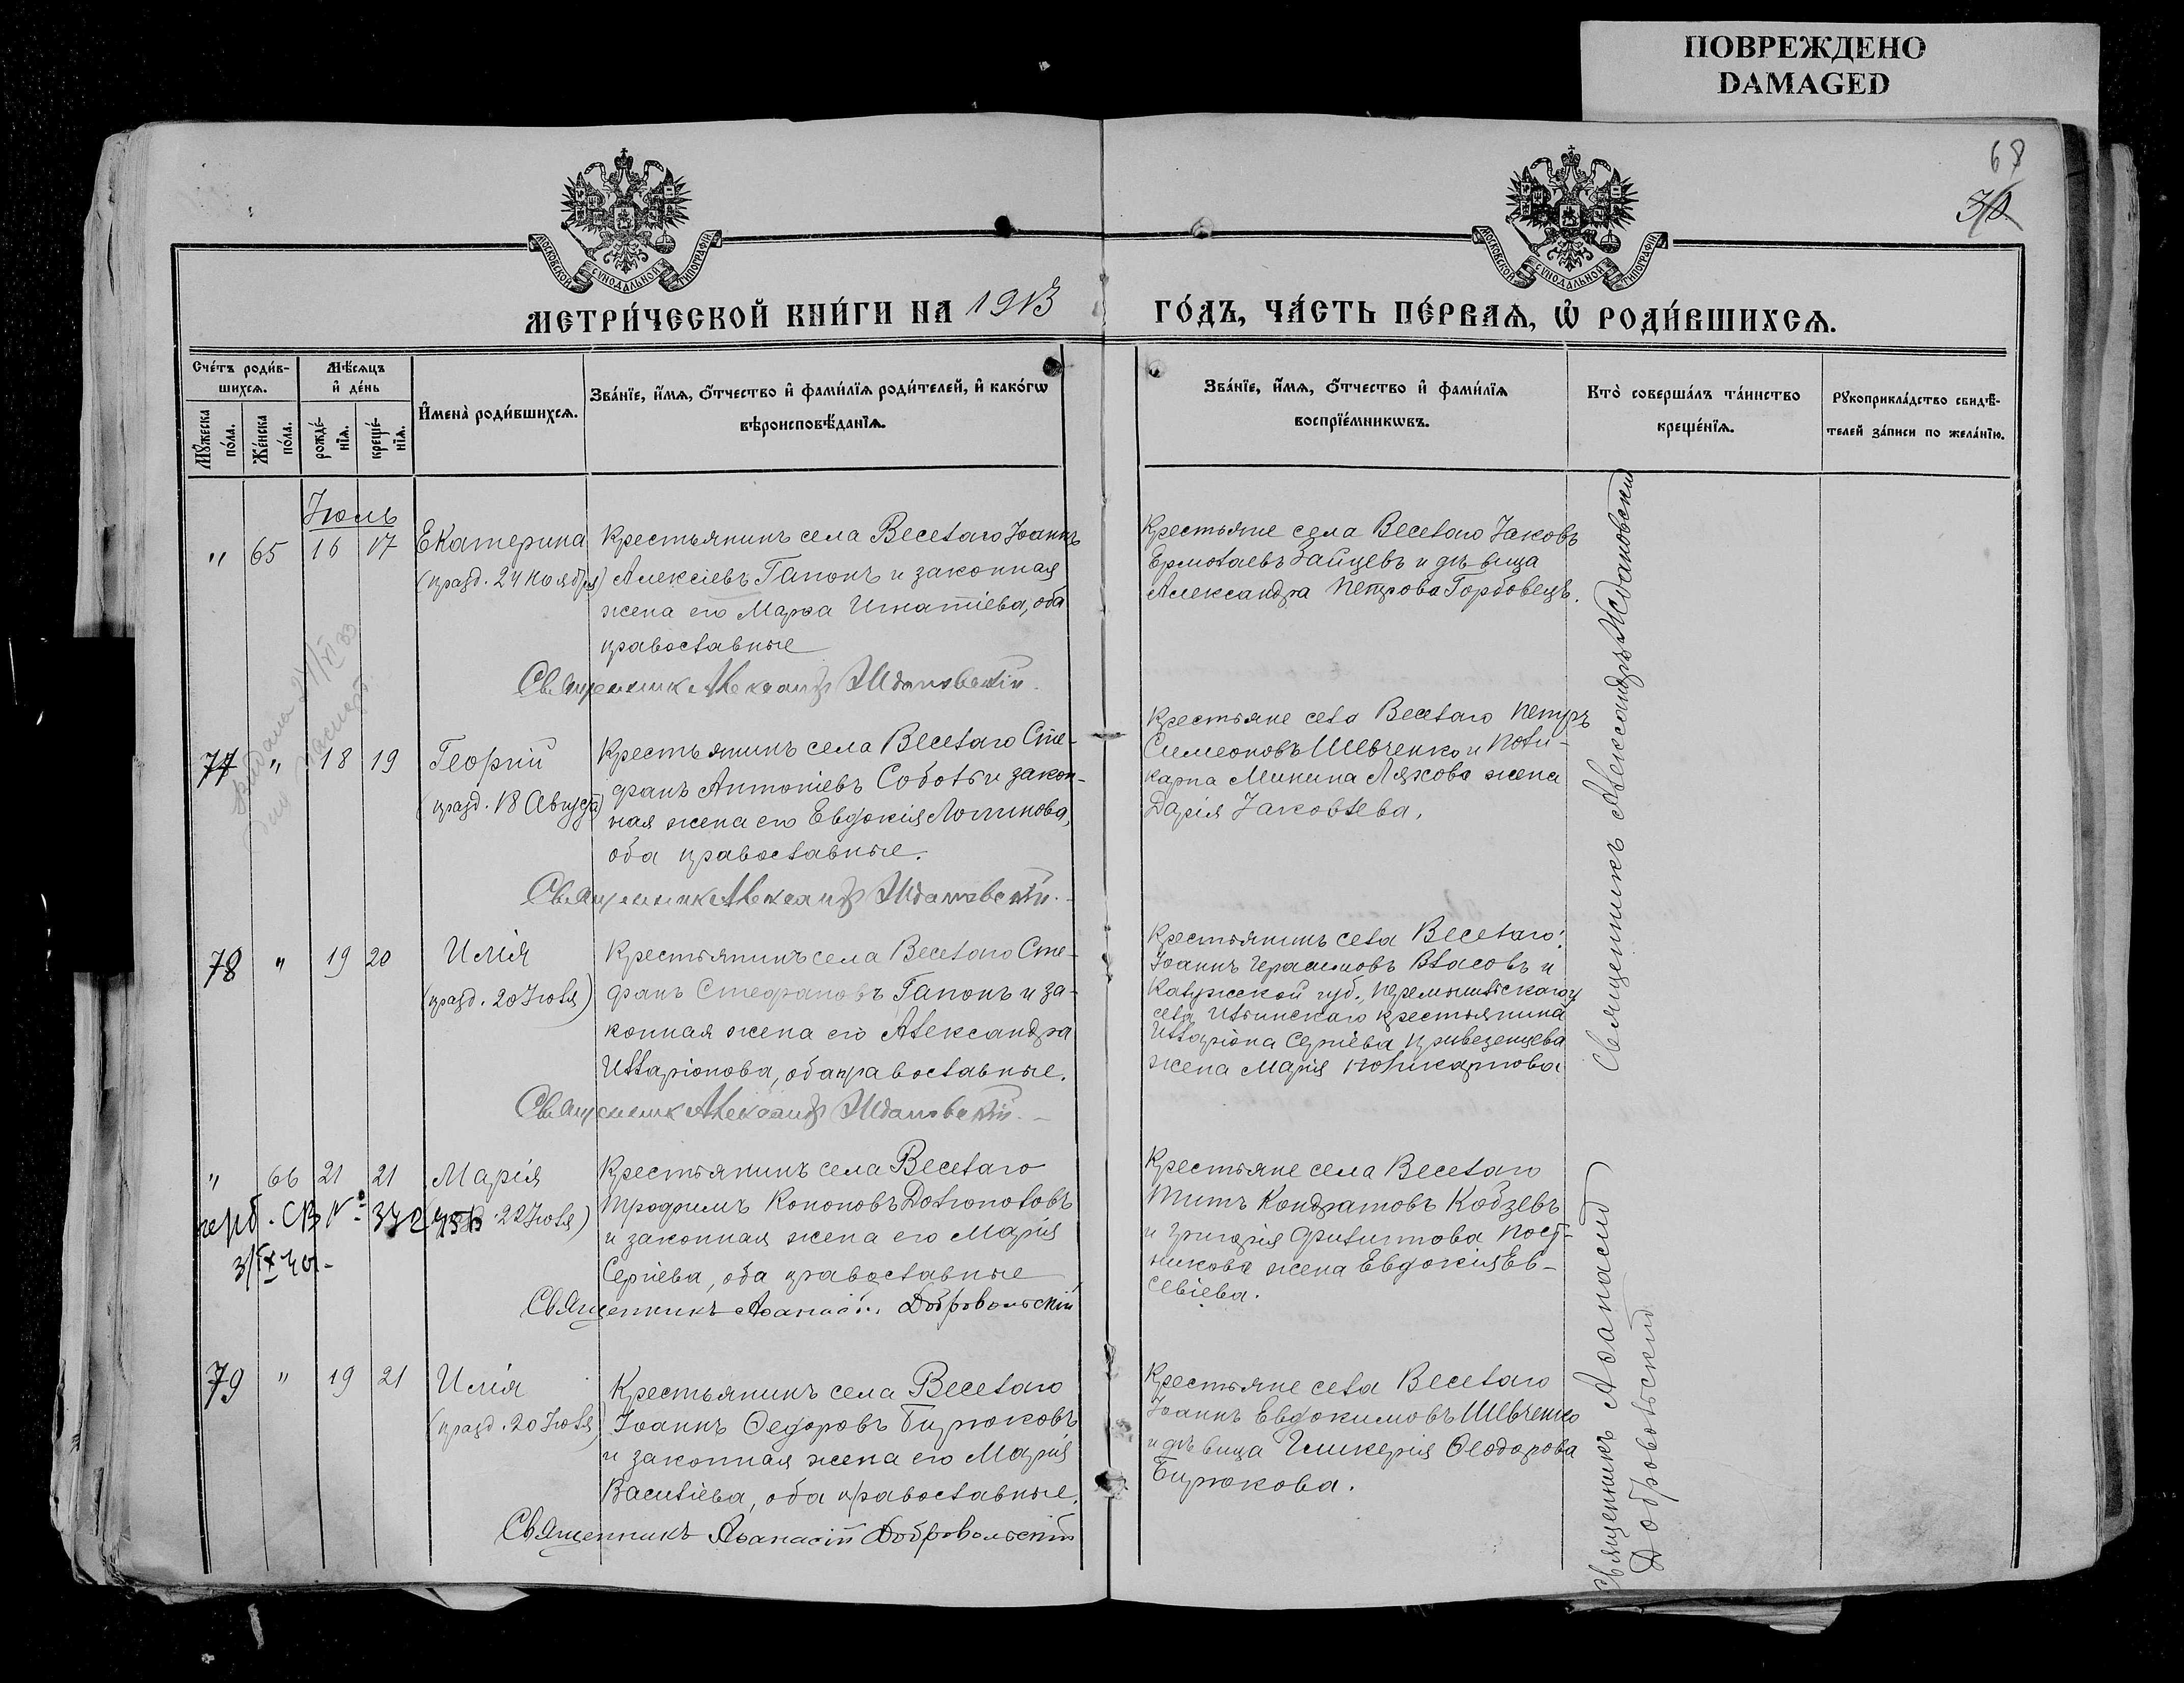 ПОВРЕЖДЕНО
DAMAGED
68
МОСКОВСКОЙ СѴНОДАЛЬНОЙ ТИПОГРАФІИ
МОСКОВСКОЙ СѴНОДАЛЬНОЙ ТИПОГРАФІИ
МЕТРИ́ЧЕСКОЙ КНИ́ГИ НА 1913 ГО́ДЪ, ЧА́СТЬ ПЕ́РВАѦ, Ѡ҆ РОДИ́ВШИХСѦ.
Сче́тъ роди́в-
шихсѧ.
Мѣ́сѧцъ
и҆ де́нь
Мꙋ́жеска
по́ла.
Же́нска
по́ла.
рожде́-
нїѧ.
креще́-
нїѧ.
И҆мена̀ роди́вшихсѧ.
Зва́нїе, и҆́мѧ, ѻ҆́тчество и҆ фами́лїѧ роди́телей, и҆ како́гѡ
вѣроисповѣ́данїѧ.
Зва́нїе, и҆́мѧ, ѻ҆́тчество и҆ фами́лїѧ
воспрїе́мникѡвъ.
Кто̀ соверша́лъ та́инство
креще́нїѧ.
Рꙋкоприкла́дство свидѣ́-
телей за́писи по жела́нїю.
Іюль
" 65 16 17 Екатерина
(празд. 24 ноября)
Крестьянинъ села Веселаго Іоаннъ
Алексіевъ Гапонъ и законная
жена его Марѳа Игнатіева, оба
православные
Священник Александр Ждановскій.
Крестьяне села Веселаго Іаковъ
Ермолаевъ Зайцевъ и дѣвица
Александра Петрова Горбовецъ.
Священникъ Александръ Ждановскій
77 " 18 19 Георгій
(празд. 18 Августа)
Крестьянинъ села Веселаго Сте-
фанъ Антоніевъ Соболь и закон-
ная жена его Евдокія Логинова,
оба православные.
Священник Александр Ждановскій.
Крестьяне села Веселаго Петръ
Симеоновъ Шевченко и Поли-
карпа Минина Ляхова жена
Дарія Іаковлева.
78 " 19 20 Илія
(празд. 20 Іюля)
Крестьянинъ села Веселаго Сте-
фанъ Стефановъ Гапонъ и за-
конная жена его Александра
Илларіонова, оба православные.
Священник Александр Ждановскій.
Крестьянинъ села Веселаго
Іоаннъ Герасимовъ Власовъ и
Калужской губ., Перемышльскаго у
села Ильинскаго крестьянина
Илларіона Сергіева Привезенцева
жена Марія Поликарпова
" 66 21 21 Марія
22 Іюля)
Крестьянинъ села Веселаго
Трофимъ Кононовъ Долнополовъ
и законная жена его Марія
Сергіева, оба православные
Священникъ Аѳанасій Добровольскій
Крестьяне села Веселаго
Титъ Кондратовъ Кобзевъ
и Григорія Филиппова Пост-
никова жена Евдокія Ев-
севіева.
Священникъ Аѳанасій
Добровольскій
79 " 19 21 Илія
(празд. 20 Іюля)
Крестьянинъ села Веселаго
Іоаннъ Ѳедоровъ Бирюковъ
и законная жена его Марія
Василіева, оба православные.
Священникъ Аѳанасій Добровольскій
Крестьяне села Веселаго
Іоаннъ Евдокимовъ Шевченко
и дѣвица Гликерія Ѳеодорова
Бирюкова.